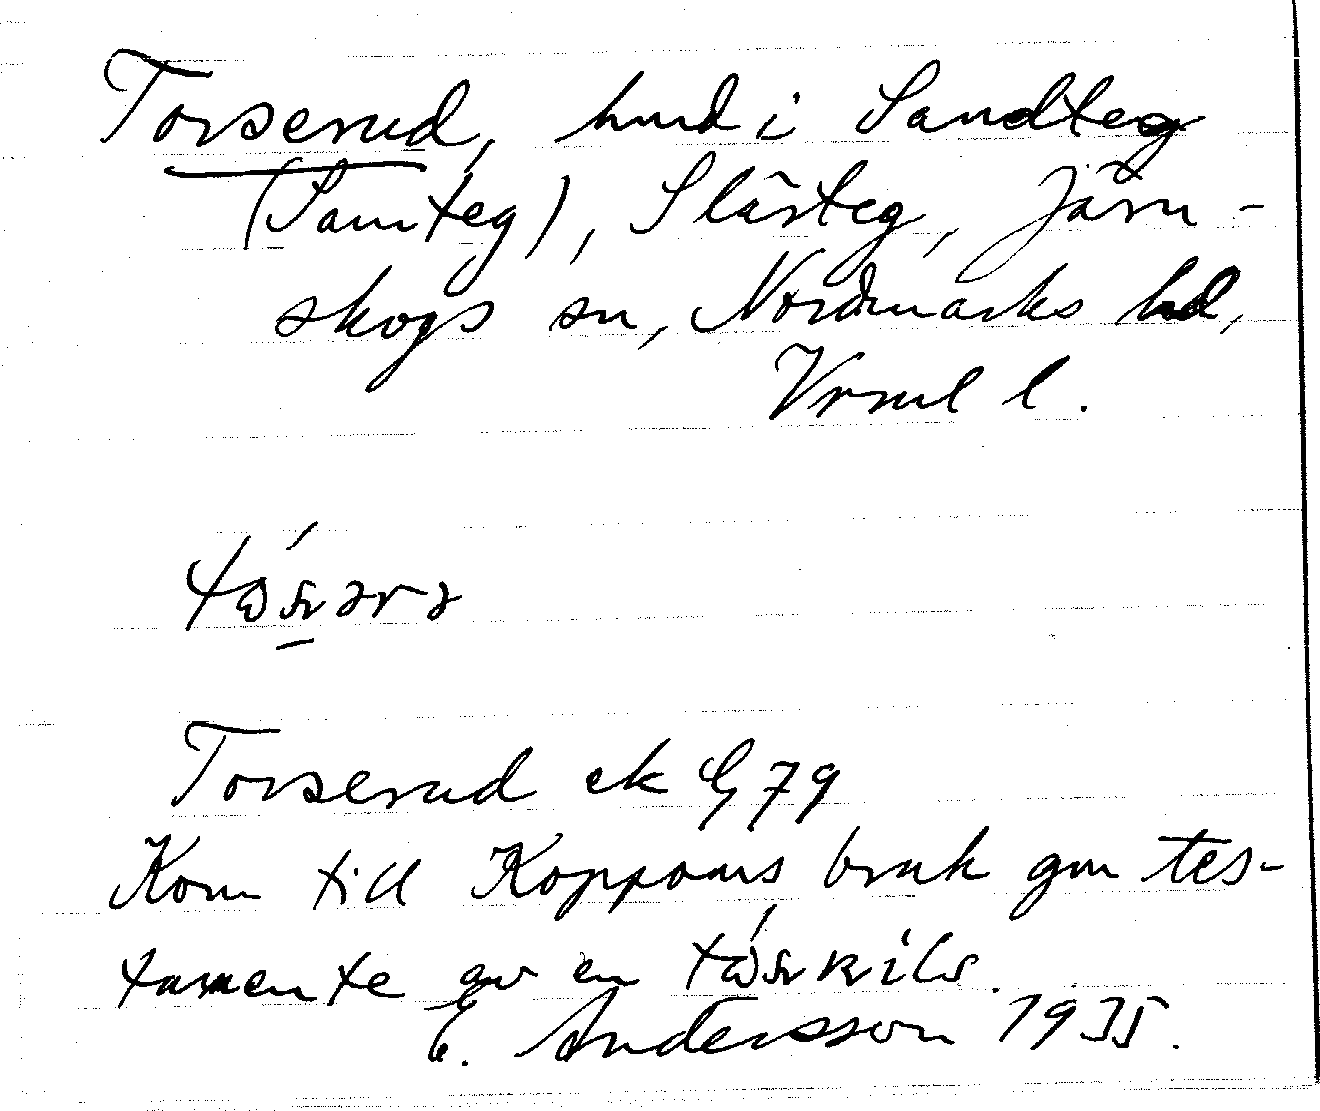 Torserud, hmd i Sandteg
(Samteg), Slärteg, Järn-
skogs sn, Nordmarks hd,
Vrml l.
Torserud ek G 79
Kom till Koppoms bruk gm tes-
tamente av en
E. Andersson 1935.